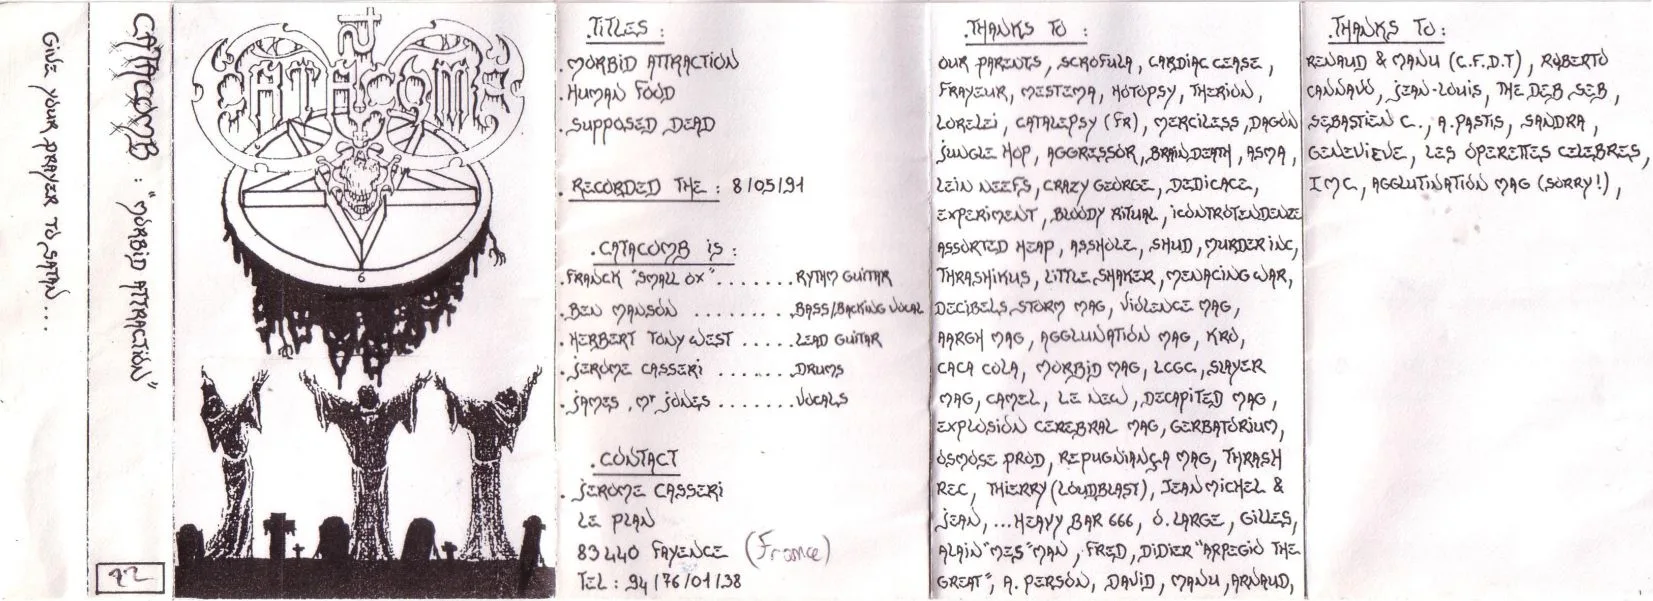 GIVE YOUR PRAYER TO SATAN....
CATACOMB : "MORBID ATTRACTION"
CATACOMB
6
.TITLES :
.MORBID ATTRACTION
.HUMAN FOOD
.SUPPOSED DEAD
.RECORDED THE : 8/05/91
.CATACOMB IS :
.FRANCK "SMALL OX" .......RYTAM GUITAR
.BEN MANSON .........BASS/BACKING VOCAL
.HERBERT TONY WEST .....LEAD GUITAR
.JEROME CASSERI .......DRUMS
.JAMES , Mr JONES ........VOCALS
.CONTACT
.JEROME CASSERI
LE PLAN
83440 FAYENCE (France)
TEL : 94/76/01/38
.THANKS TO :
OUR PARENTS, SCROFULA, CARDIAC CEASE,
FRAYEUR, MESTEMA, HOTOPSY, THERION,
LORELEI, CATALEPSY (FR), MERCILESS, DAGON
JUNGLE HOP, AGGRESSOR, BRAINDEATH, ASMA,
LEIN NEEFS, CRAZY GEORGE, DEDICACE,
EXPERIMENT, BLOODY RITUAL, ICONTROTENDENZE
ASSORTED HEAP, ASSHOLE, SHUD, MURDER INC,
THRASHIKUS, LITTLE SHAKER, MENACING WAR,
DECIBELS, STORM MAG, VIOLENCE MAG,
AARGH MAG, AGGLUNATION MAG, KRO,
CACA COLA, MORBID MAG, LCGC, SLAYER
MAG, CAMEL, LE NEW, DECAPITED MAG,
EXPLOSION CEREBRAL MAG, GERBATORIUM,
OSMOSE PROD, REPUGNIANÇA MAG, THRASH
REC, THIERRY (LOUDBLAST), JEAN MICHEL &
JEAN, ...HEAVY BAR 666, O.LARGE, GILLES,
ALAIN "MES" MAN, FRED, DIDIER "ARPEGIO THE
GREAT", A. PERSON, DAVID, MANU, ARNAUD,
.THANKS TO :
RENAUD & MANU (C.F.D.T), ROBERTO
CANNAVO, JEAN-LOUIS, THE DEB SEB,
SEBASTIEN C., A.PASTIS, SANDRA,
GENEVIEVE, LES OPERETTES CELEBRES,
IMC, AGGLUTINATION MAG (SORRY!),